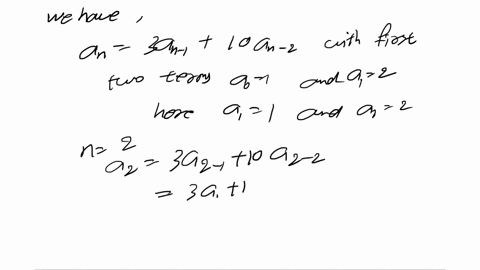 we have,
aₙ = 3aₙ₋₁ + 10aₙ₋₂ with first
two terms a₀=1 and a₁=2
here a₁=1 and a₁=2
n=2
a₂ = 3a₂₋₁+10a₂₋₂
= 3a₁+1